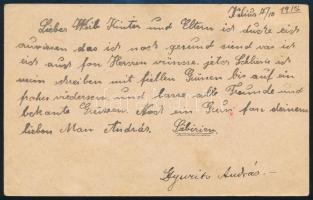 Július 4/10 1916
Lieber Weib Kinter und Eltern ich duhe eich
auwisen das ich noch gesund siend was ich
eich aus fon Herzen winsse. jetz Schlise ich
mein streiben mit fiellen Grüsen bis auf ein
frohes wiedersen, und lasse alle Freunde und
bekante Grüsen. Nost ein Grus fon deinem
lieben Man András. Sibirien
Gyurits András.-